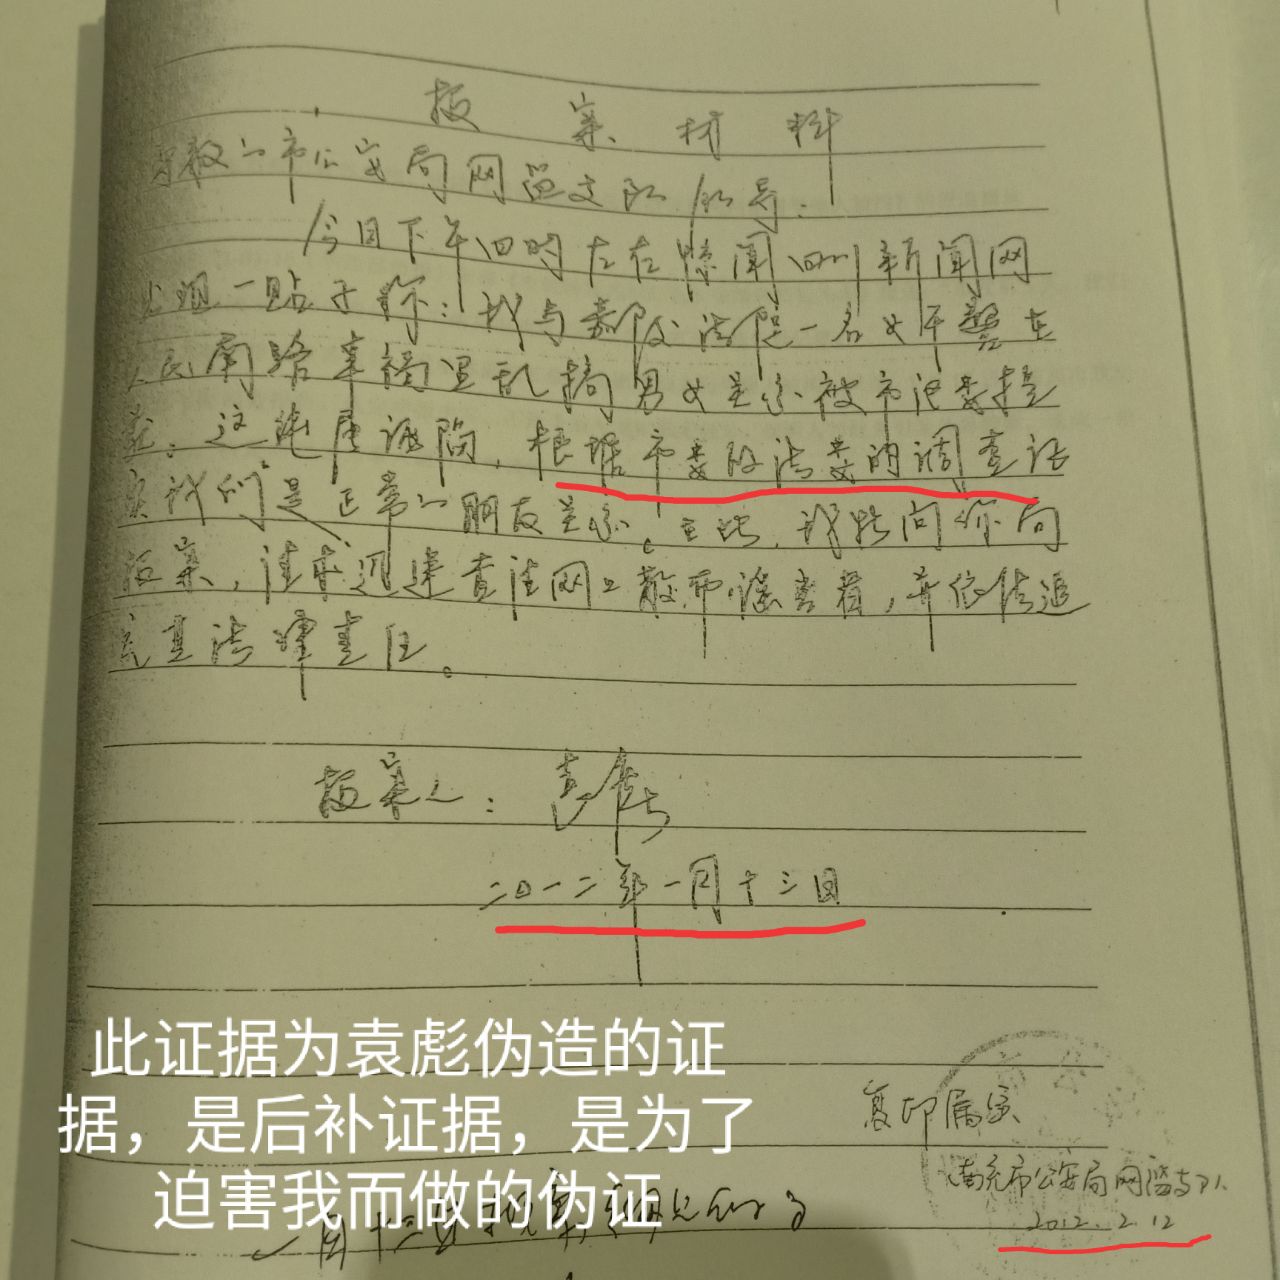 报案材料
尊敬的市公安局网监支队领导：
今日下午四时左右惊闻四川新闻网
上现一贴子称：我与嘉陵法院一名女干警在
人民南路幸福里乱搞男女关系被市纪委挡
获。这纯属诬陷，根据市委政法委的调查证
实我们是正常的朋友关系。至此，我特向你们
报案，请求迅速查清网上散布谣言者，并依法追
究其法律责任。
报案人：袁彪
二0一二年一月十三日
此证据为袁彪伪造的证
据，是后补证据，是为了
迫害我而做的伪证
复印属实
南充市公安局网监支队
2012.2.12